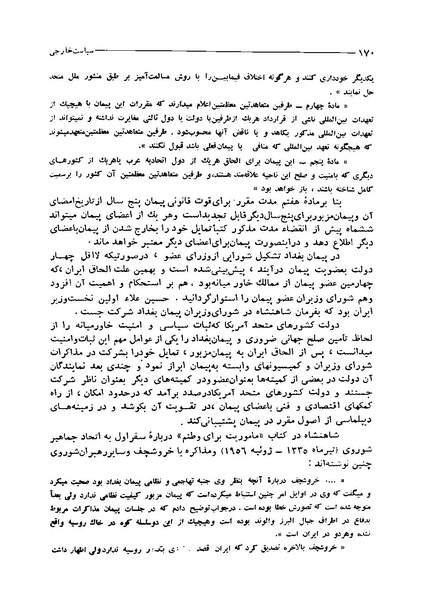 ۱۷۰ سیاست خارجی
یکدیگر خودداری کنند و هرگونه اختلاف فیمابین را با روش مسالمت‌آمیز بر طبق منشور ملل متحد
حل نمایند ».
« مادهٔ چهارم ــ طرفین متعاهدتین معظمتین اعلام میدارند که مقررات این پیمان با هیچیک از
تعهدات بین‌المللی ناشی از قرارداد هریک از طرفین با دولت یا دول ثالثی مغایرت نداشته و نمیتواند از
تعهدات بین‌المللی مذکور بکاهد و یا ناقض آنها محسوب‌شود. طرفین متعاهدتین معظمتین متعهد میشوند
که هیچگونه تعهد بین‌المللی که منافی با پیمان‌فعلی باشد قبول نکنند ».
« مادهٔ پنجم ــ این پیمان برای الحاق هریک از دول اتحادیه عرب یا هریک از کشورهای
دیگری که بامنیت و صلح این ناحیه علاقه‌مند هستند، و طرفین متعاهدتین معظمتین آن کشور را برسمیت
کامل شناخته باشند ، باز خواهد بود »
بنا بر مادهٔ هفتم مدت مقرر برای قوت قانونی پیمان پنج سال از تاریخ امضای
آن و پیمان مزبور برای پنج سال دیگر قابل تجدید است و هر یک از اعضای پیمان میتواند
ششماه پیش از انقضاء مدت مذکور کتباً تمایل خود را بخارج شدن از پیمان باعضای
دیگر اطلاع دهد و در اینصورت پیمان برای اعضای دیگر معتبر خواهد ماند .
در پیمان بغداد تشکیل شورایی از وزرای عضو ، در صورتیکه لااقل چهار
دولت بعضویت پیمان درآیند ، پیش‌بینی شده است و بهمین علت الحاق ایران ، که
چهارمین عضو پیمان از ممالک خاور میانه بود ، هم بر استحکام و اهمیت آن افزود
وهم شورای وزیران عضو پیمان را استوار گردانید . حسین علاء اولین نخست‌وزیر
ایران بود که بفرمان شاهنشاه در شورای وزیران پیمان بغداد شرکت جست .
دولت کشورهای متحد آمریکا که ثبات سیاسی و امنیت خاورمیانه را از
لحاظ تأمین صلح جهانی ضروری و پیمان بغداد را یکی از عوامل مهم این ثبات و امنیت
میدانست ، پس از الحاق ایران به پیمان مزبور ، تمایل خود را بشرکت در مذاکرات
شورای وزیران و کمیسیونهای وابسته به پیمان ابراز نمود و چندی بعد نمایندگان
آن دولت در بعضی از کمیته‌ها بعنوان عضو و در کمیته‌های دیگر بعنوان ناظر شرکت
جستند و دولت کشورهای متحد آمریکا درصدد برآمد که در حدود امکان ، از راه
کمکهای اقتصادی و فنی باعضای پیمان ، در تقویت آن بکوشد و در زمینه‌های
دیپلماسی از اصول مقرر در پیمان پشتیبانی کند .
شاهنشاه در کتاب «مأموریت برای وطنم» دربارهٔ سفر اول به اتحاد جماهیر
شوروی (تیرماه ۱۳۳۵ ــ ژوئیه ۱۹۵۶) و مذاکره با خروشچف و سایر رهبران شوروی
چنین نوشته‌اند :
« .... خروشچف دربارهٔ آنچه بنظر وی جنبه تهاجمی و نظامی پیمان بغداد بود صحبت میکرد
و میگفت که وی در اوایل امر چنین استنباط میکرده است که پیمان مزبور کیفیت نظامی ندارد ولی بعداً
متوجه شده است که تصورش خطا بوده است . در جواب توضیح دادم که در جلسات پیمان مذاکرات مربوط
بدفاع در اطراف جبال البرز والوند بوده است و هیچیک از این دو سلسله کوه در خاک روسیه واقع
نشده و هر دو در ایران است .»
« خروشچف بالاخره تصدیق کرد که ایران قصد روسیه ندارد ولی اظهار داشت